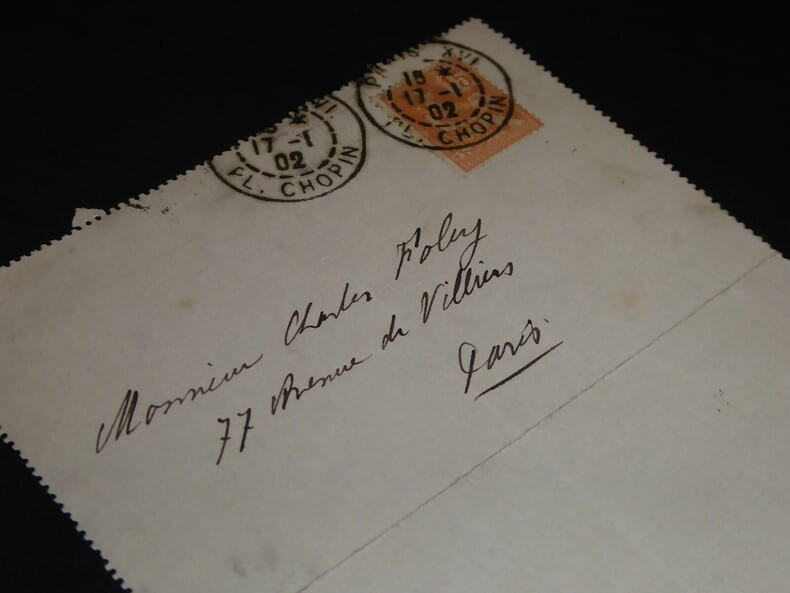 PARIS XVI
15 *
17 -1
02
PL. CHOPIN
17 -1
02
PL. CHOPIN
15
Monsieur Charles Foley
77 Avenue de Villiers
Paris